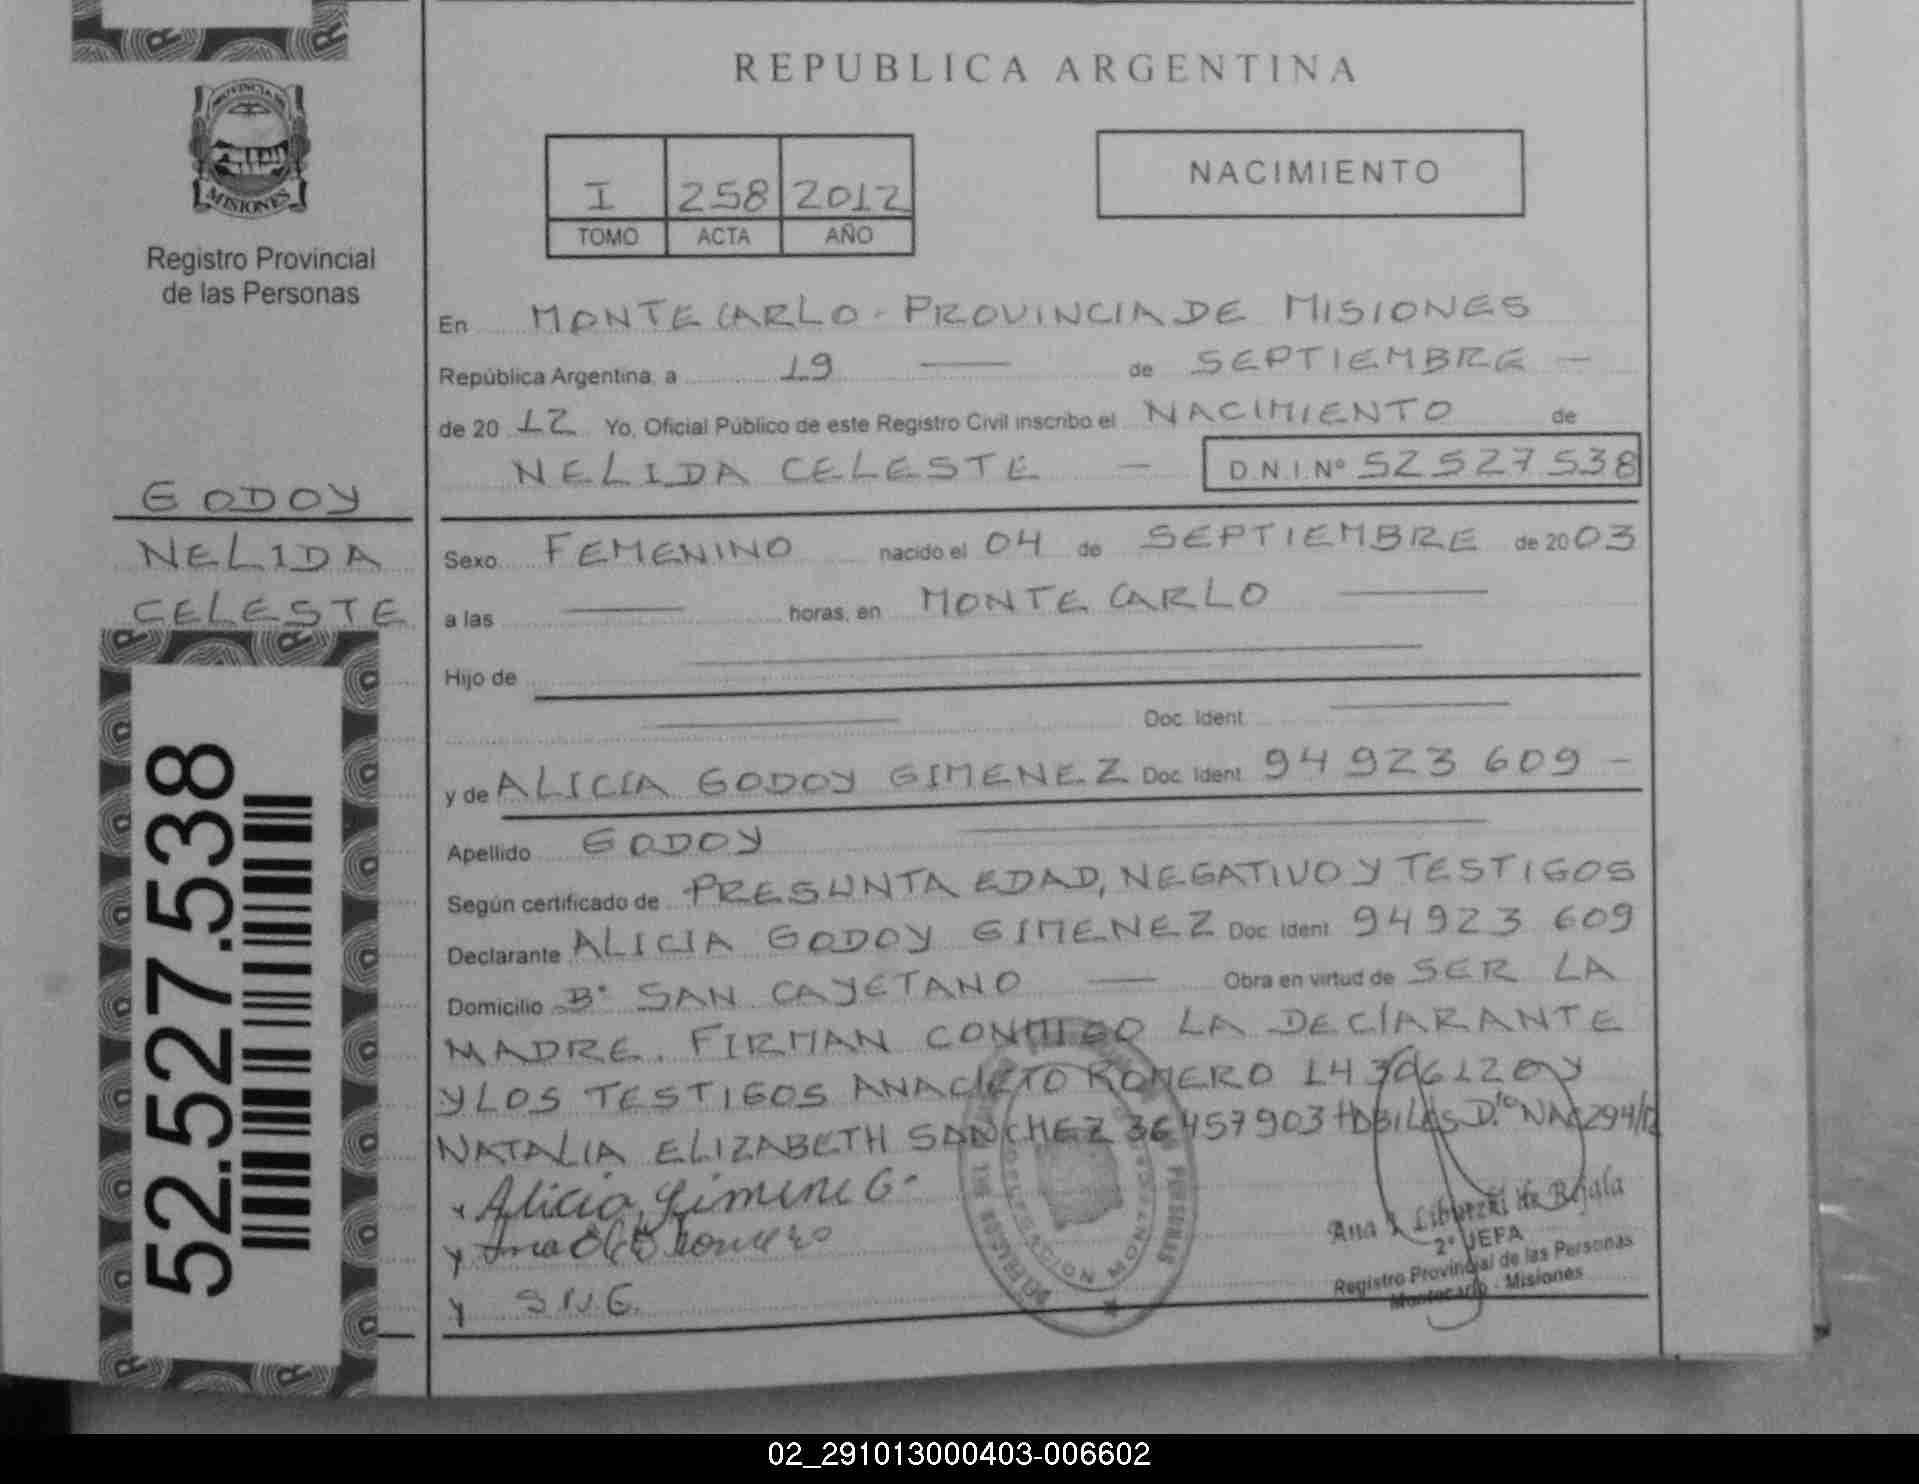 PROVINCIA DE
MISIONES
Registro Provincial
de las Personas
GODOY
NELIDA
CELESTE
52.527.538
REPUBLICA ARGENTINA
I 258 2012
TOMO ACTA AÑO
NACIMIENTO
En MONTECARLO - PROVINCIA DE MISIONES
República Argentina, a 19 — de SEPTIEMBRE —
de 20 12 Yo, Oficial Público de este Registro Civil inscribo el NACIMIENTO de
NELIDA CELESTE — D.N.I.Nº 52527538
Sexo FEMENINO nacido el 04 de SEPTIEMBRE de 2003
a las — horas, en MONTECARLO —
Hijo de —
— Doc. Ident. —
y de ALICIA GODOY GIMENEZ Doc. Ident. 94923609 -
Apellido GODOY —
Según certificado de PRESUNTA EDAD, NEGATIVO Y TESTIGOS
Declarante ALICIA GODOY GIMENEZ Doc. Ident. 94923609
Domicilio Bº SAN CAYETANO — Obra en virtud de SER LA
MADRE. FIRMAN CONMIGO LA DECLARANTE
Y LOS TESTIGOS ANACLETO ROMERO 14306120 Y
NATALIA ELIZABETH SANCHEZ 36457903 HABILES D.to NAC 294/12
x Alicia Gimene G.
Romero
S N E.
2º JEFA
Registro Provincial de las Personas
Montecarlo - Misiones
02_291013000403-006602